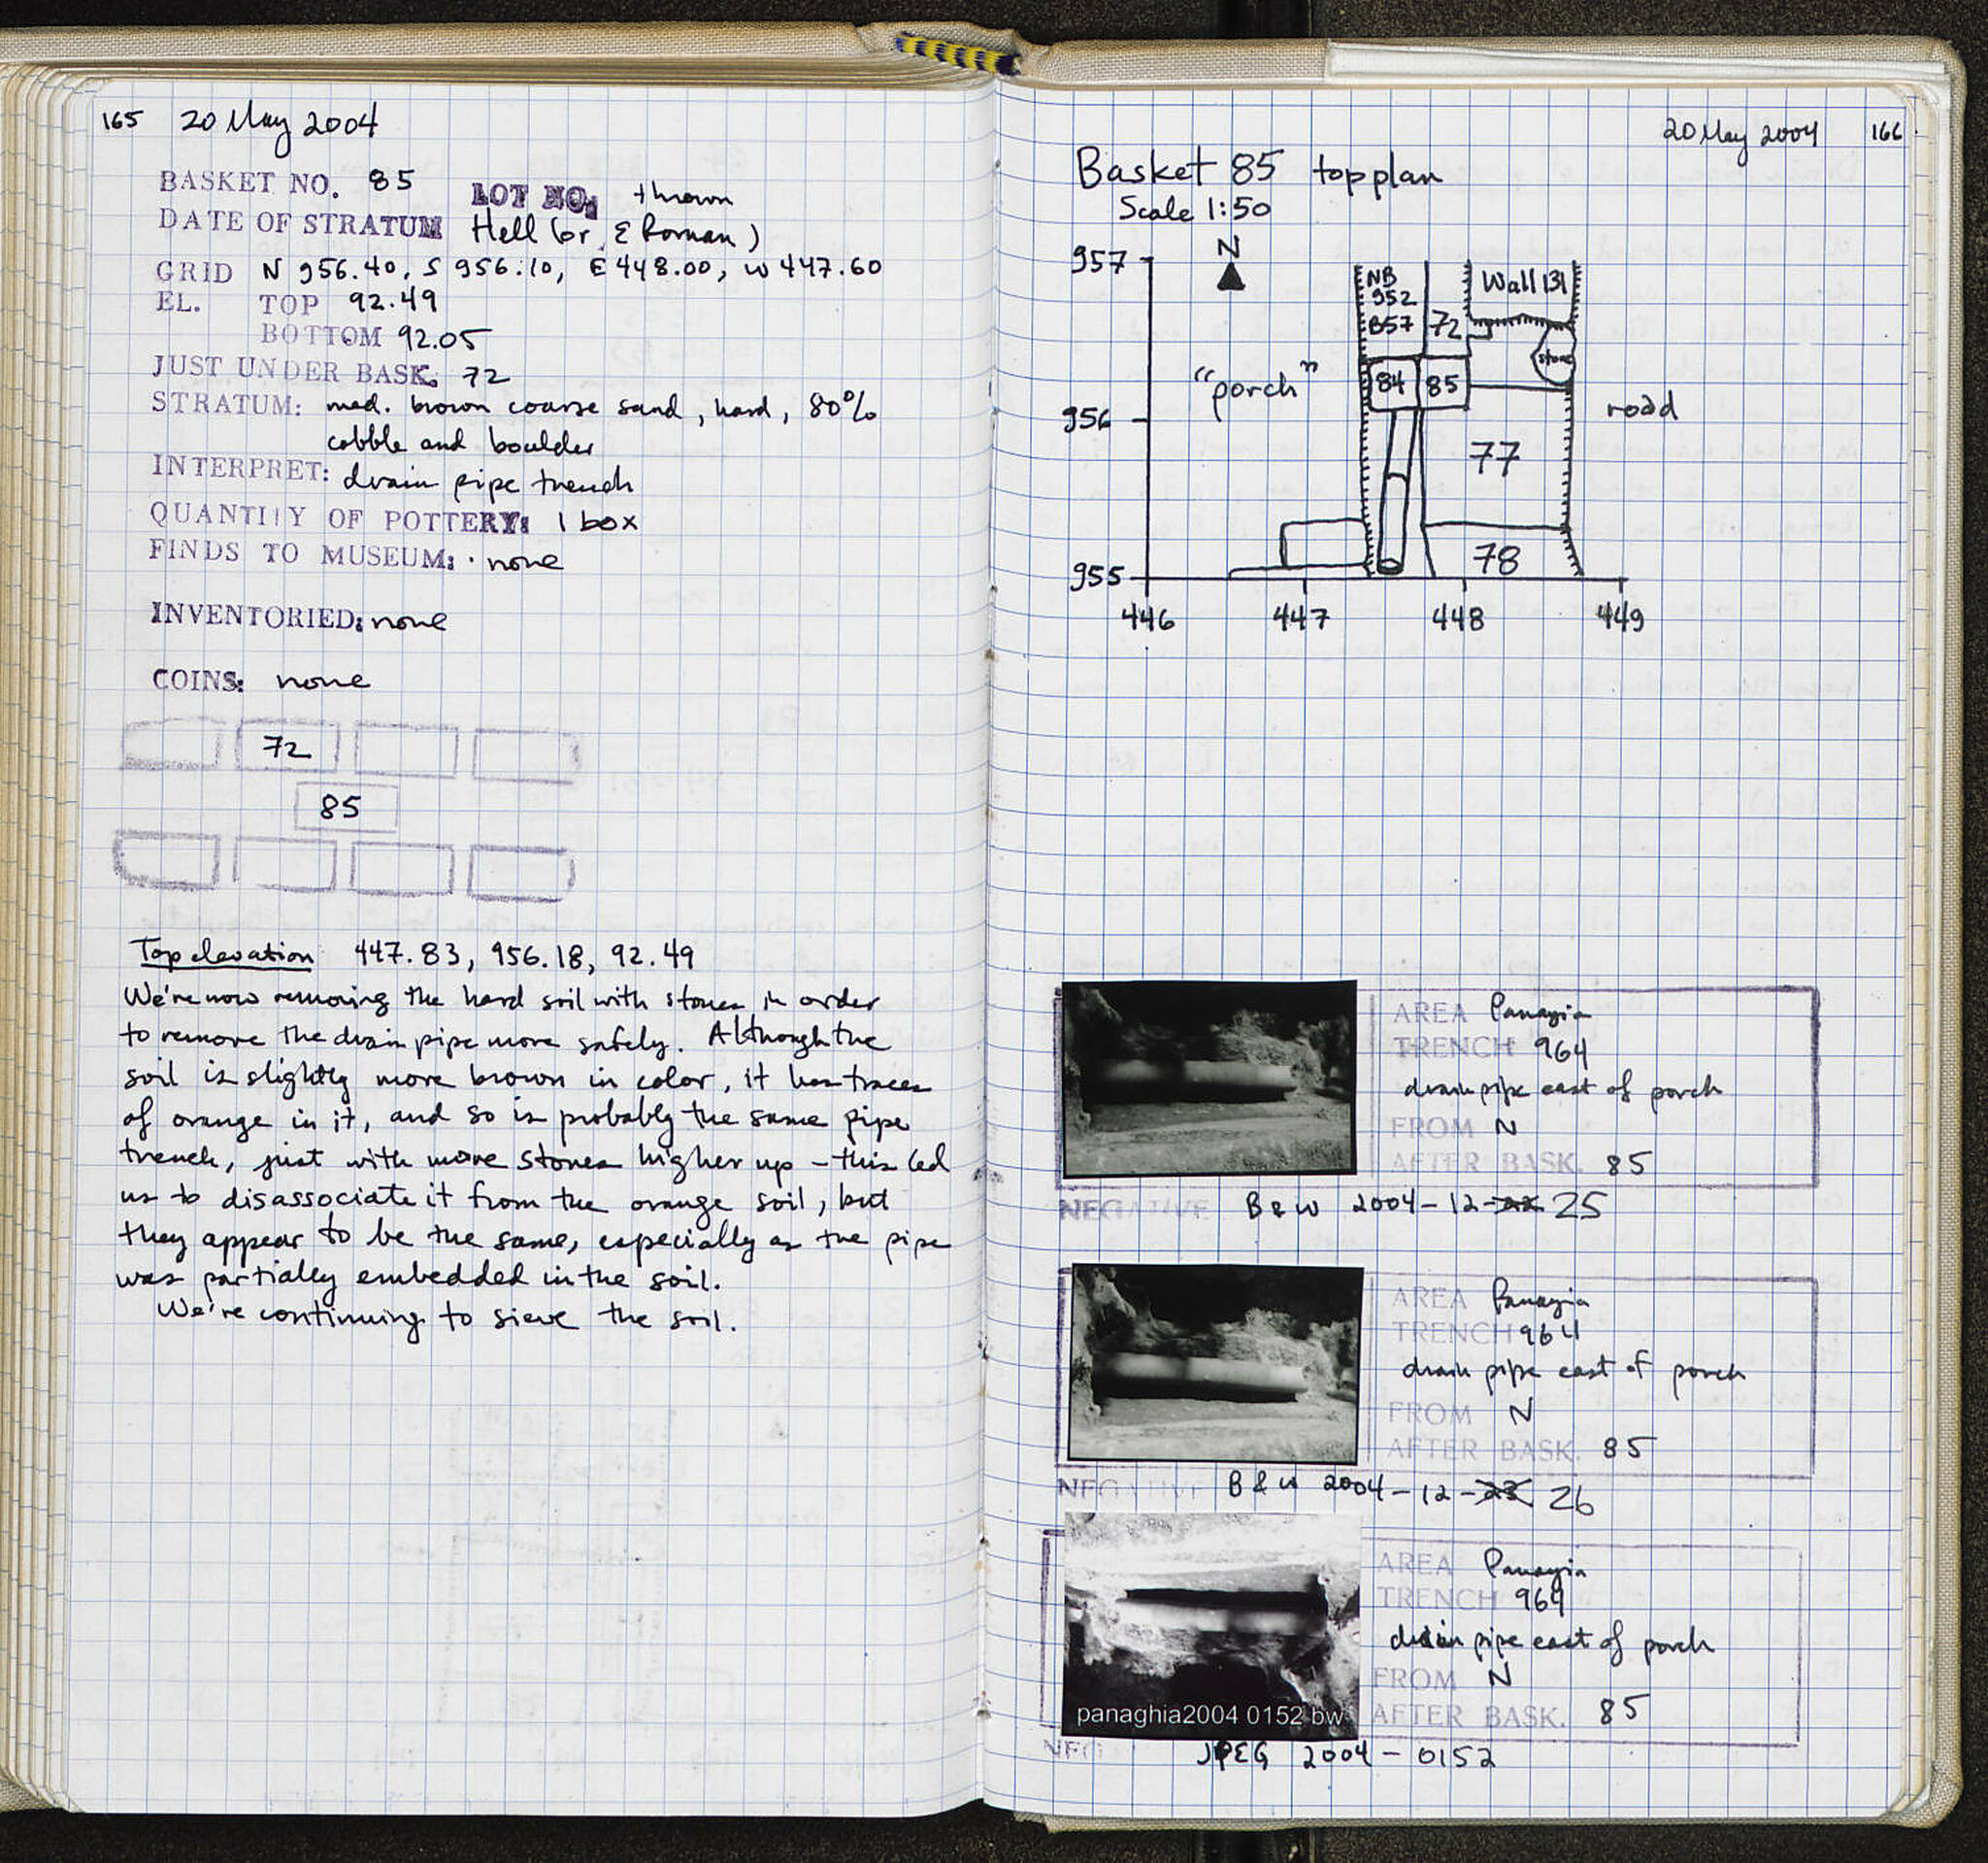 165 20 May 2004
BASKET NO. 85 LOT NO: thrown
DATE OF STRATUM Hell (or E Roman)
GRID N 956.40, S 956.10, E 448.00, W 447.60
EL. TOP 92.49
BOTTOM 92.05
JUST UNDER BASK. 72
STRATUM: med. brown coarse sand, hard, 80%
cobble and boulder
INTERPRET: drain pipe trench
QUANTITY OF POTTERY: 1 box
FINDS TO MUSEUM: none
INVENTORIED: none
COINS: none
72
85
Top elevation 447.83, 956.18, 92.49
We're now removing the hard soil with stones in order
to remove the drain pipe more safely. Although the
soil is slightly more brown in color, it has traces
of orange in it, and so is probably the same pipe
trench, just with more stones higher up - this led
us to disassociate it from the orange soil, but
they appear to be the same, especially as the pipe
was partially embedded in the soil.
We're continuing to sieve the soil.
20 May 2004 166
Basket 85 top plan
Scale 1:50
957 N
NB
952
B57 72 Wall 131
stone
"porch" 84 85
956 road
77
78
955
446 447 448 449
AREA Panayia
TRENCH 964
drain pipe east of porch
FROM N
AFTER BASK. 85
NEGATIVE B&W 2004-12-22 25
AREA Panayia
TRENCH 964
drain pipe east of porch
FROM N
AFTER BASK. 85
NEGATIVE B&W 2004-12-23 26
AREA Panayia
TRENCH 964
drain pipe east of porch
FROM N
AFTER BASK. 85
panaghia2004 0152 bw
NEG JPEG 2004-0152